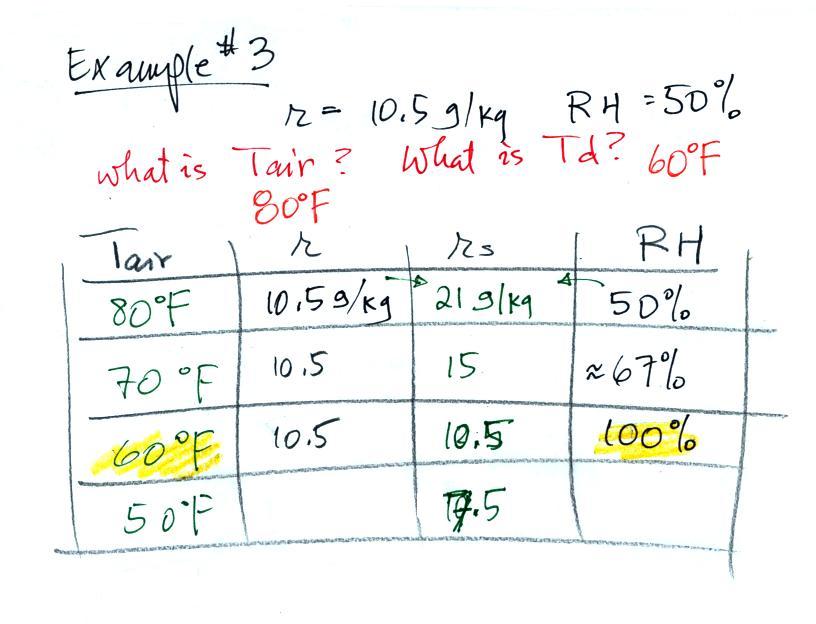 Example #3
r = 10.5 g/kg RH = 50%
what is Tair? What is Td? 60°F
80°F
Tair r rs RH
80°F 10.5 g/kg 21 g/kg 50%
70°F 10.5 15 ≈67%
60°F 10.5 10.5 100%
50°F 7.5